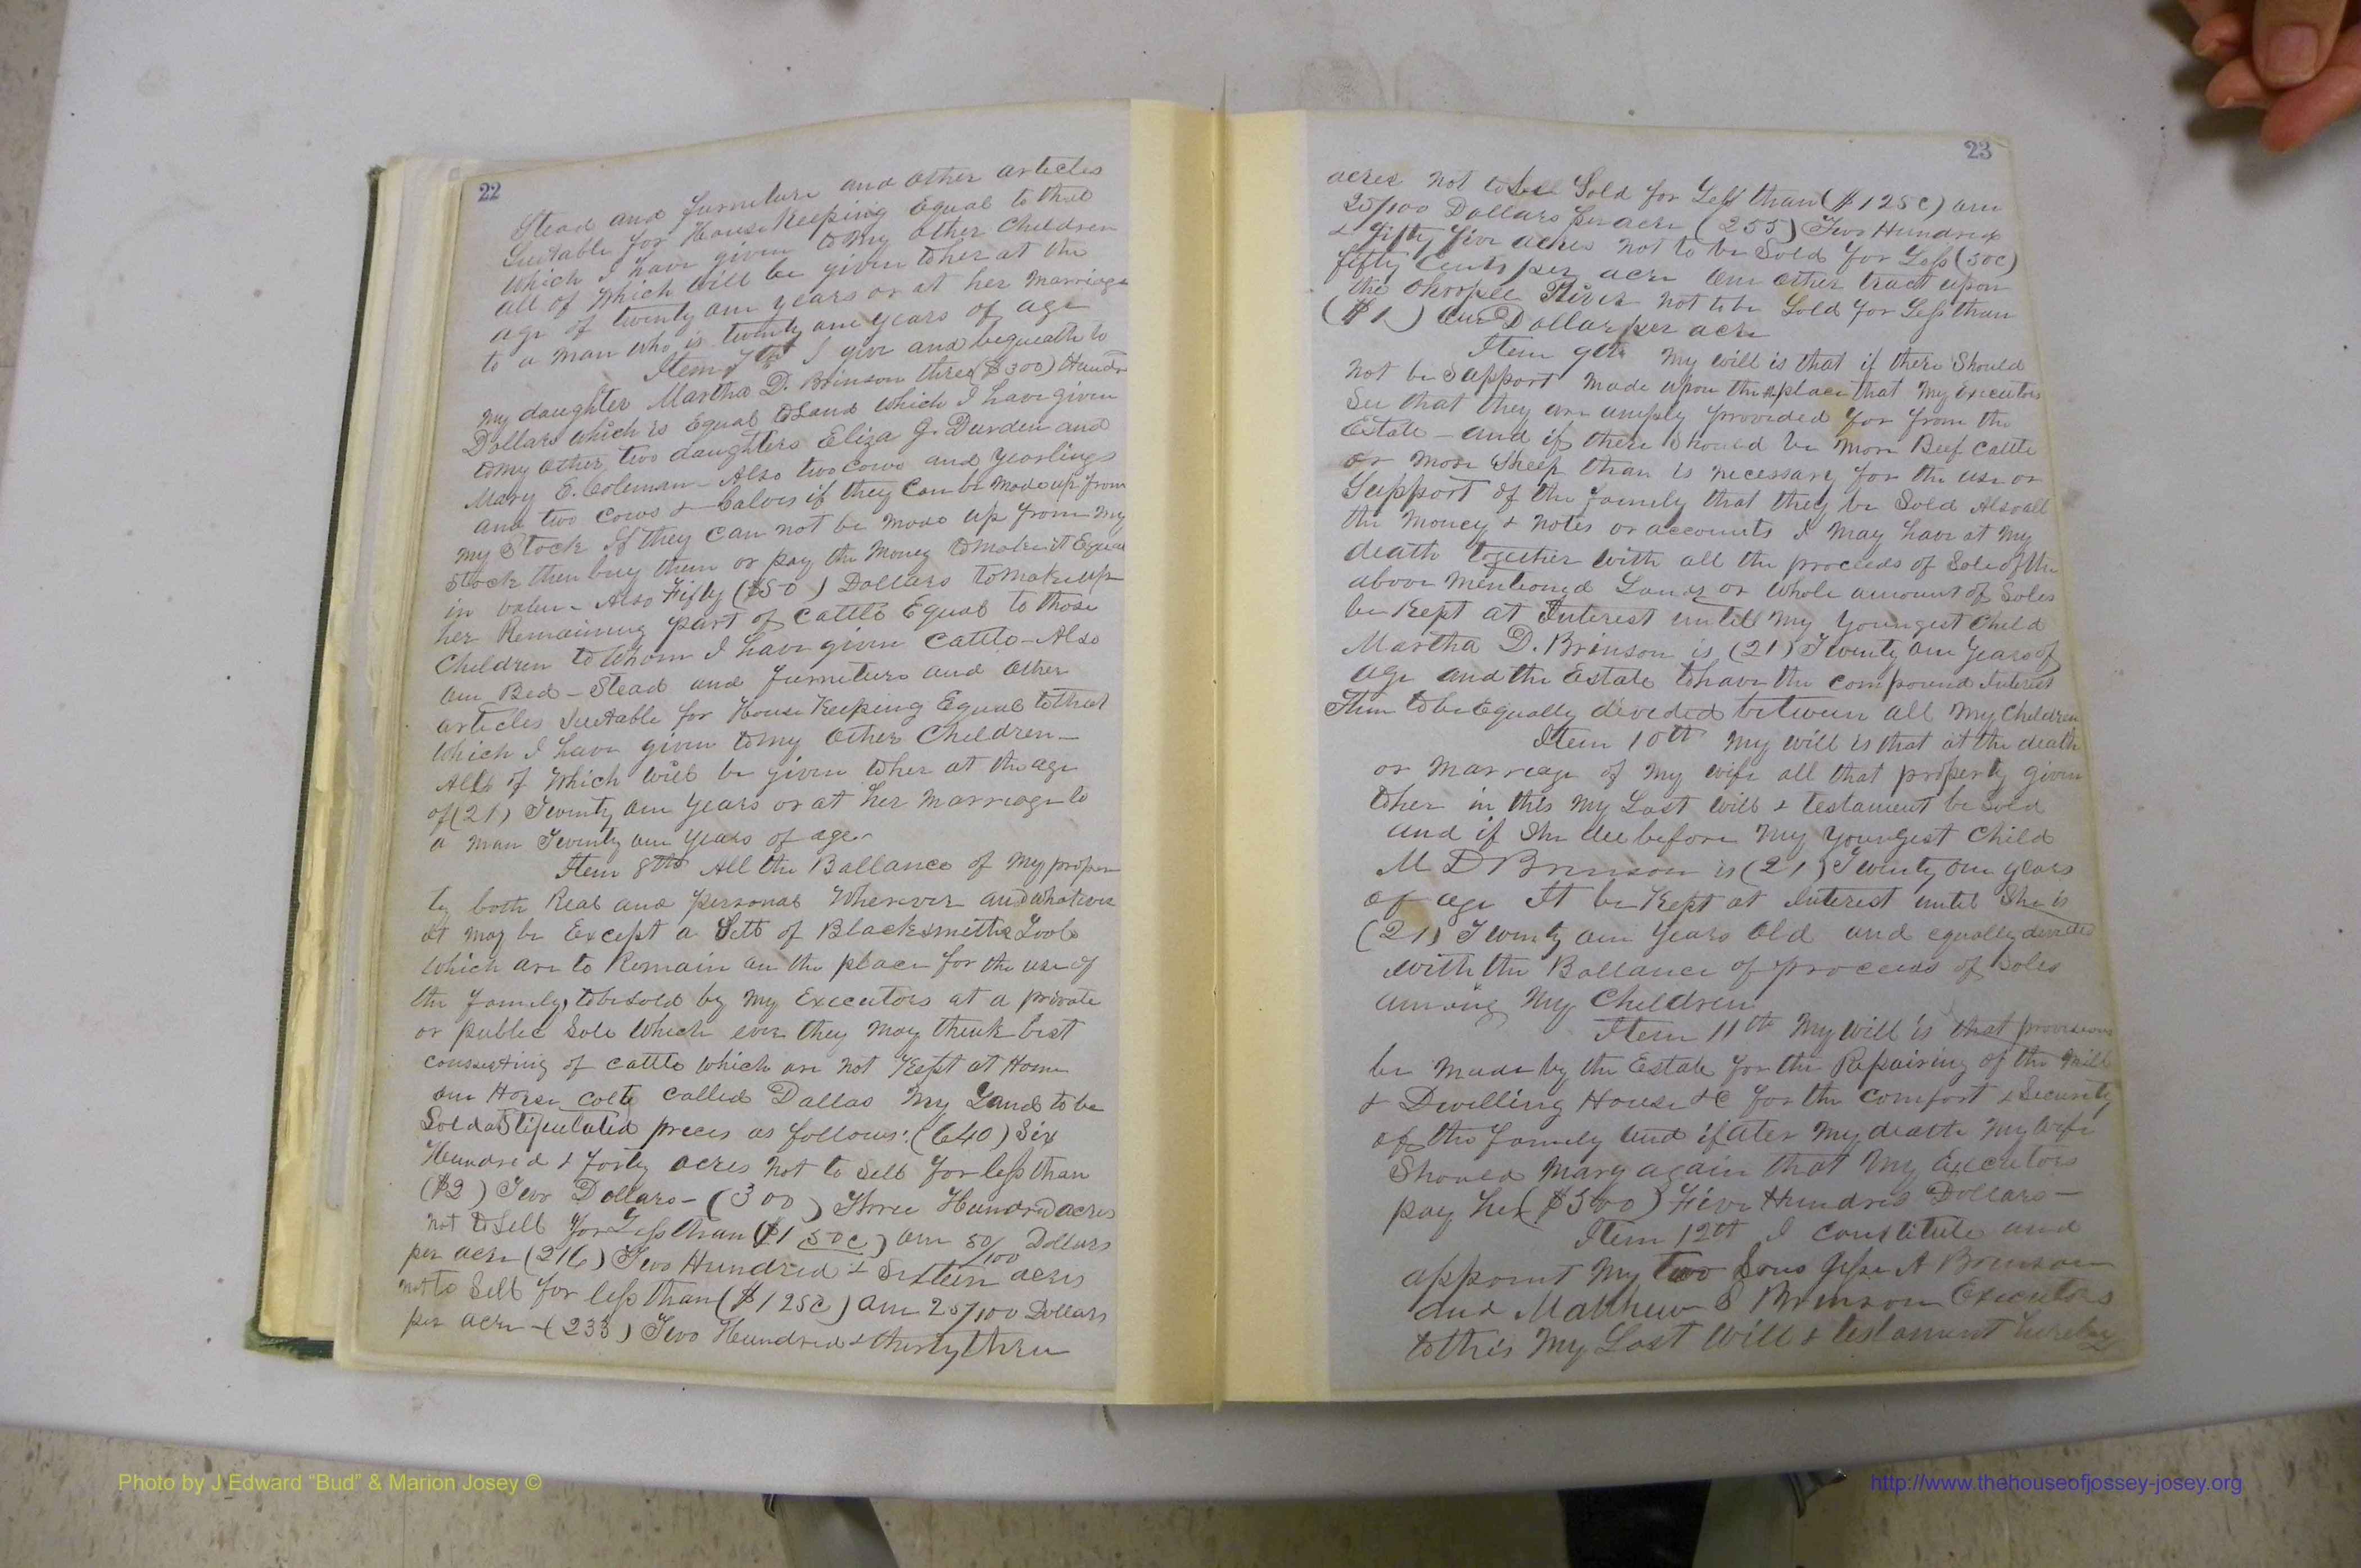 22
Stead and furniture and other articles
Suitable for House Keeping Equal to that
which I have given to my other Children
all of which will be given to her at the
age of twenty one years or at her marriage
to a man who is twenty one years of age
Item 7th I give and bequeath to
my daughter Martha D. Brinson three ($300) Hundr
Dollars which is Equal to Land which I have given
to my other two daughters Eliza J. Durden and
Mary E. Coleman - Also two cows and yearlings
and two cows & Calves if they Can be made up from
my Stock If they can not be made up from my
Stock then buy them or pay the money to make it Equal
in value - Also Fifty ($50) Dollars to make up
her Remaining part of cattle Equal to those
Children to whom I have given Cattle - Also
one Bed - Stead and furniture and other
articles Suitable for House Keeping Equal to that
which I have given to my other Children -
All of which will be given to her at the age
of (21) Twenty one years or at her marriage to
a man Twenty one years of age
Item 8th All the Ballance of my proper
ty both Real and personal Wherever and whatever
it may be Except a Sett of Blacksmiths Tools
which are to Remain on the place for the use of
the family, to be sold by my Executors at a private
or public Sale which ever they may think best
consisting of cattle which are not Kept at Home
one Horse colt called Dallas My Land to be
Sold at Stipulated preces as follows: (640) Six
Hundred & forty acres not to Sell for less than
($2) Two Dollars - (300) Three Hundred acres
not to Sell for Less than ($1 50c) one 50/100 Dollars
per acre (216) Two Hundred & Sixteen acres
not to Sell for less than ($1 25c) one 25/100 Dollars
per acre - (233) Two Hundred & thirty three
23
acres not to be Sold for Less than ($1 25c) one
25/100 Dollars per acre (255) Two Hundred
& fifty five acres not to be Sold for Less (50c)
fifty Cents per acre one other tract upon
the Ohoopee River not to be Sold for Less than
($1) one Dollar per acre
Item 9th My will is that if there Should
not be Support made upon the place that my Executors
See that they are amply provided for from the
Estate - and if there should be more Beef cattle
or more Sheep than is necessary for the use or
Support of the family that they be Sold Also all
the money & notes or accounts I may have at my
death together with all the proceeds of Sale of the
above mentioned Lands or whole amount of Sales
be Kept at Interest untill my youngest Child
Martha D. Brinson is (21) Twenty one years of
age and the Estate to have the compound Interest
Then to be Equally divided between all my Children
Item 10th My will is that at the death
or marreage of my wife all that property given
to her in this my Last will & testament be sold
and if she die before my youngest Child
M D Brinson is (21) Twenty one years
of age It be Kept at Interest until She is
(21) Twenty one years old and equally devided
with the Ballance of proceeds of Sales
among my Children
Item 11th My will is that provisions
be made by the Estate for the Repairing of the Mill
& Dwelling House &c for the comfort & Security
of the family and if after my death my wife
Should mary again that my Executors
pay her ($500) Five Hundred Dollars -
Item 12th I constitute and
appoint my two Sons Jesse A Brinson
and Matthew S Brinson Executors
to this my Last Will & testament hereby
Photo by J Edward “Bud” & Marion Josey ©
http://www.thehouseofjossey-josey.org